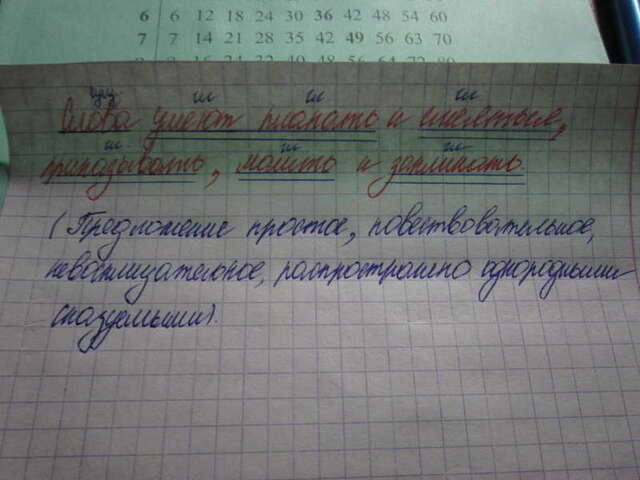 6 6 12 18 24 30 36 42 48 54 60
7 7 14 21 28 35 42 49 56 63 70
8 8 16 24 32 40 48 56 64 72 80
сущ. гл гл гл
Слова умеют плакать и смеяться,
гл гл гл
приказывать, молить и заклинать.
(Предложение простое, повествовательное,
невосклицательное, распространено однородными
сказуемыми).